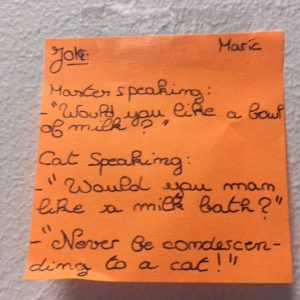 Joke: Marie
Master speaking:
-"Would you like a bowl
of milk?"
Cat Speaking:
-"Would you man
like a milk bath?"
-"Never be condescen-
ding to a cat!"